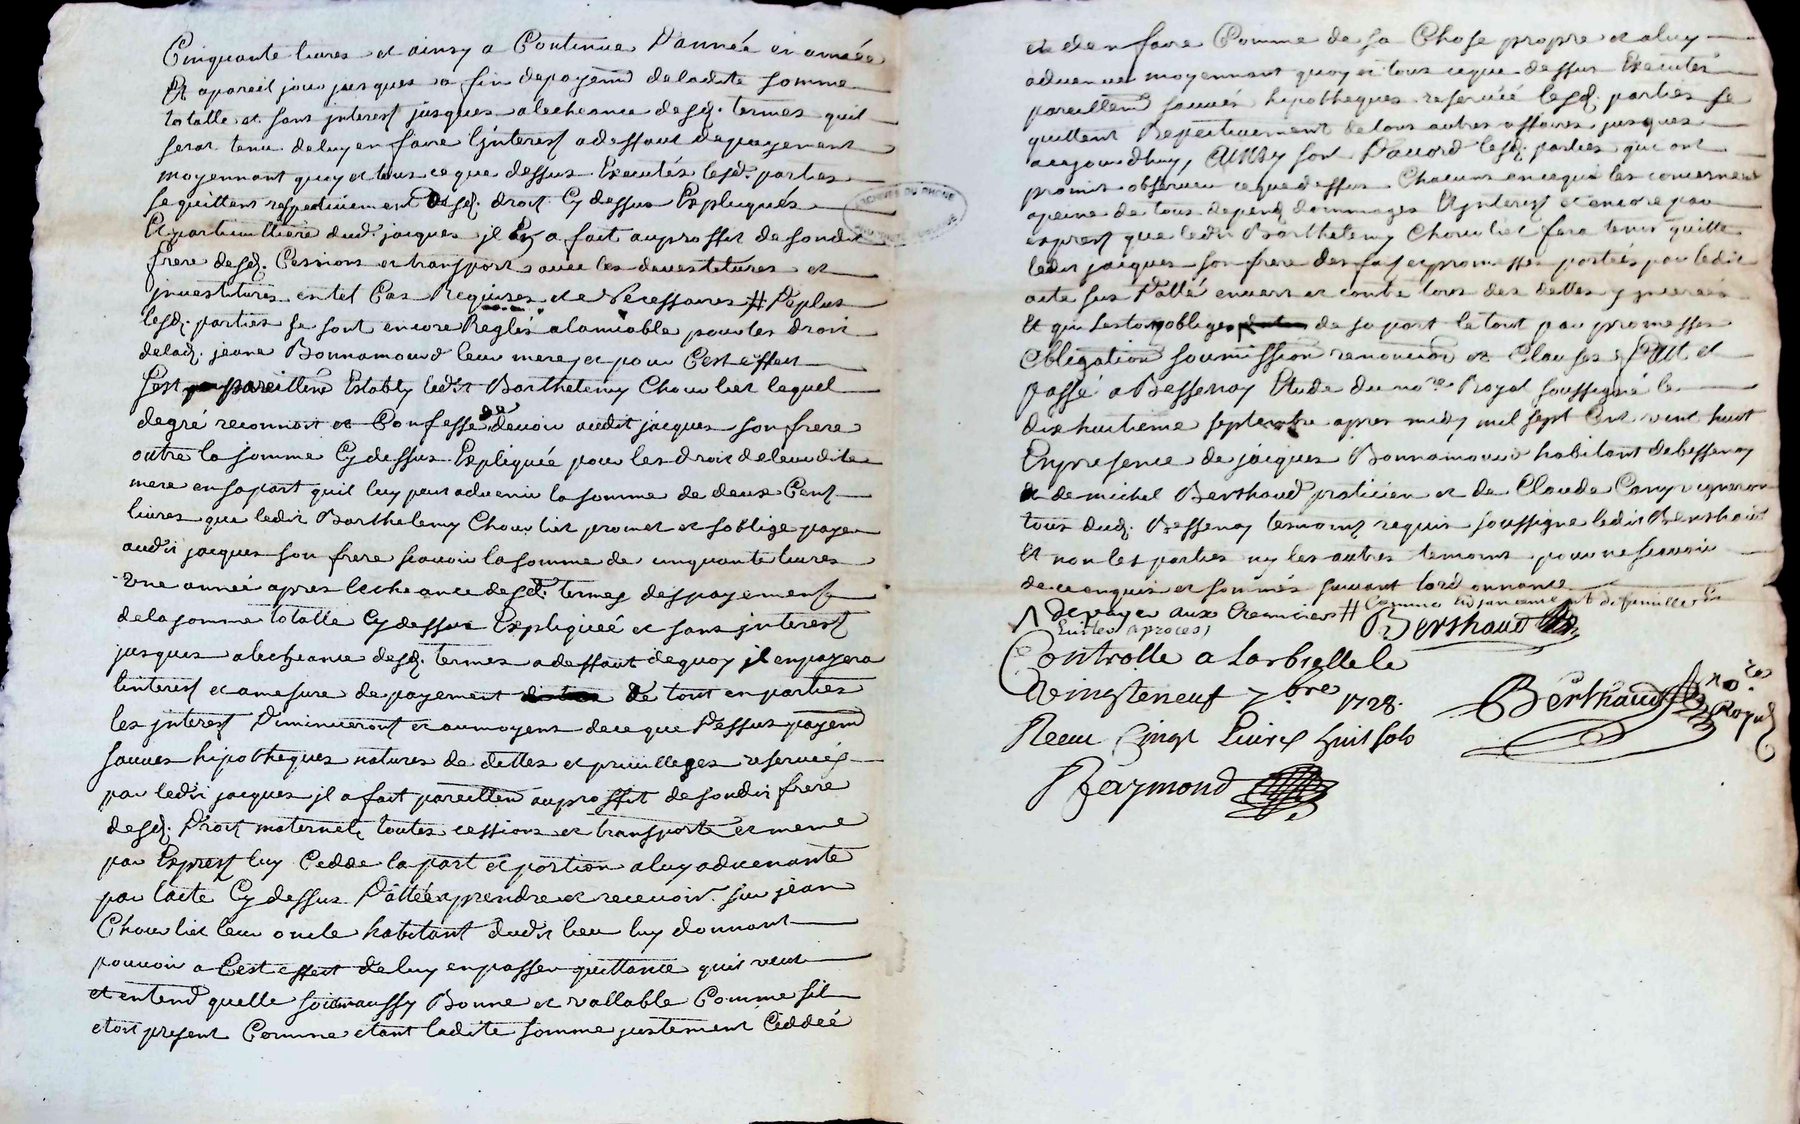 Cinquante livres et ainsy a Continuer D'année en année
Et apareil jour jusques a fin depayemt deladite somme
totalle et sans jnterest jusques alecheance desd. termes quil
serat tenu deluy en faire L'jnterest adeffaut depayement
moyennant quoy et tous ce que dessus Executés lesd. parties
se quittent respectivement desd. droit Cy dessus Expliqués
Et particulliere dud. jacques jl En a fait auproffit de sondit
frere desd. Cessions et transports avec les devestitures et
jnvestitures en tel Cas Requises et Necessaires # Deplus
lesd. parties se sont encore Reglés alamiable pour les droit
delad. jeane Bonnamour leur mere, et pour Cest effect
sest pareillemt Estably ledit Barthelemy Chouvliet lequel
degré reconnoit et Confesse de devoir audit jacques son frere
outre la somme Cy dessus Expliquée pour les droit deleurdite
mere en sa part quil luy peut advenir la somme de deux Cent
livres que ledit Barthelemy Chouvliet promet et soblige payer
audit jacques son frere scavoir la somme de cinquante livres
une année apres lecheance desd. termes des payements
dela somme totalle Cy dessus Expliquéé et sans jnterest
jusques alecheance desd. termes adeffaut dequoy jl enpayera
linterest et amesure de payement de tout en parties
les jnterest Diminueront et aumoyens dece que Dessus payemt
sauves hipotheques natures de dettes et privilleges reservées
par ledit jacques jl a fait pareillemt auproffit de sondit frere
desd. Droit maternels toutes cessions et transports et meme
par Exprest luy Cedde la part et portion a luy advenante
par lacte Cy dessus Datté a prendre et recevoir sur jean
Chouvliet leur oncle habitant dudit lieu luy donnant
pouvoir a Cest effect deluy enpasser quittance quil veut
et entend quelle soit aussy Bonne et vallable Comme sil
etoit present Comme etant ladite somme justement Ceddéé
et den faire Comme de sa Chose propre et a luy
advenue moyennant quoy et tous ceque dessus Executés
pareillemt sauves hipotheques reservéé lesd. parties se
quittent Respectivement de tous autres affaires jusques
aujourdhuy, Ainsy sont D'accord lesd. parties qui ont
promis observer ceque dessus Chacuns en ce qui les concernent
apeine de tous depens dommages Et jnterest et encore par
exprest que ledit Barthelemy Chouvliet fera tenir quitte
ledit jacques son frere des promesses portéés par ledit
acte sus Datté envers et contre tous des dettes y
Et qui sestoit obliges de sa part le tout par promesses
Obligation soumission renonciaon et Clauses, fait et
passé a Bessenay Etude du nore Royal soussigné le
dix huitieme septembre apres midy mil sept Cent vint huit
En presence de jacques Bonnamour habitant debessenay
de michel Berthaud praticien et de Claude Vigneron
tous dud. Bessenay temoins requis soussigne ledit Berthaud
Et non les parties ny les autres temoins pour ne scavoir
de ce enquis et sommés suivant lordonnance
de payer aux Creanciers # Comme de famille
Eviter a proces,
Berthaud
Controlle a Larbrelle le
Vingt neuf 7bre 1728.
Receu Cinq Livres huit sols
Raymond
Berthaud nore Royal